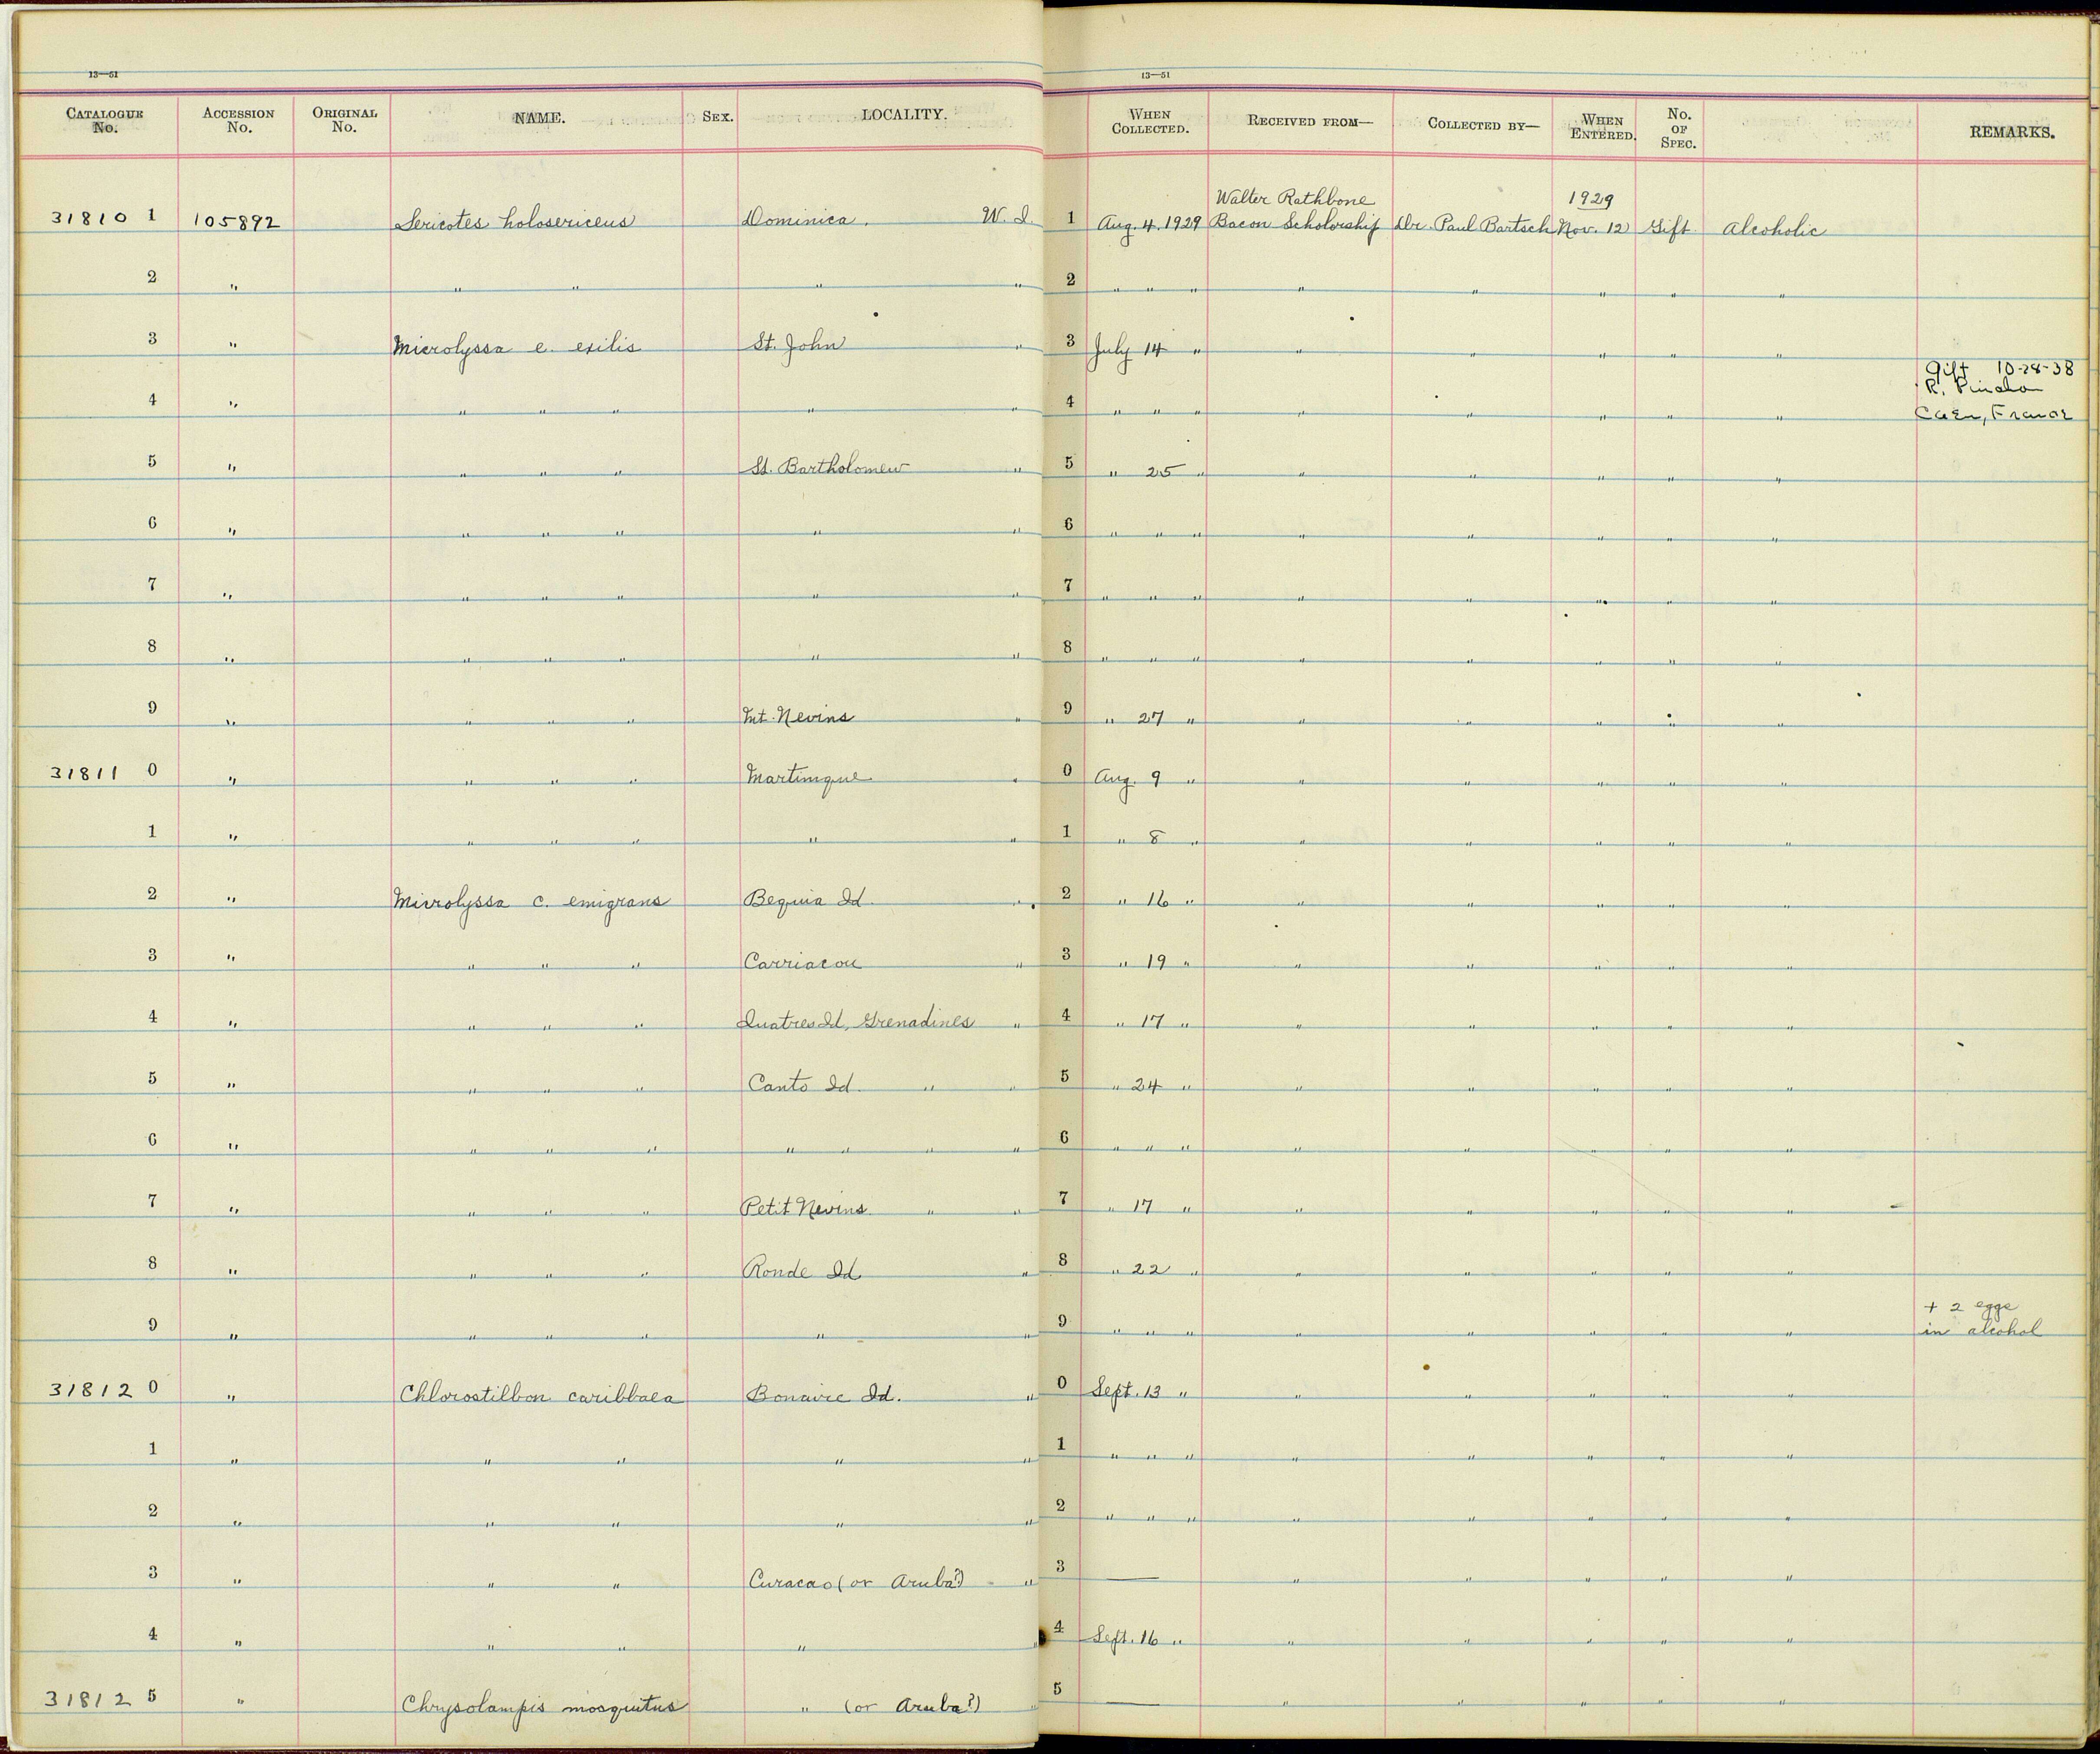 13—51
13—51
CATALOGUE No. ACCESSION No. ORIGINAL No. NAME. SEX. LOCALITY. WHEN COLLECTED. RECEIVED FROM— COLLECTED BY— WHEN ENTERED. No. OF SPEC. REMARKS.
Walter Rathbone 1929
31810 1 105892 Sericotes holosericeus Dominica. W. I. 1 Aug. 4. 1929 Bacon Scholarship Dr. Paul Bartsch Nov. 12 Gift Alcoholic
2 " " " " " 2 " " " " " " " "
3 " Microlyssa e. exilis St. John " 3 July 14 " " " " " "
Gift 10-28-38
R. Pinchon
4 " " " " " " 4 " " " " " " " " Caen, France
5 " " " " St. Bartholomew " 5 " 25 " " " " " "
6 " " " " " " 6 " " " " " " " "
7 " " " " " " 7 " " " " " " " "
8 " " " " " " 8 " " " " " " " "
9 " " " " Mt. Nevins " 9 " 27 " " " " " "
31811 0 " " " " Martinque " 0 Aug. 9 " " " " " "
1 " " " " " " 1 " 8 " " " " " "
2 " Microlyssa c. emigrans Bequia Id. " 2 " 16 " " " " " "
3 " " " " Carriacou " 3 " 19 " " " " " "
4 " " " " Quatres Id, Grenadines " 4 " 17 " " " " " "
5 " " " " Canto Id. " " 5 " 24 " " " " " "
6 " " " " " " " " 6 " " " " " " " "
7 " " " " Petit Nevins " " 7 " 17 " " " " " "
8 " " " " Ronde Id " 8 " 22 " " " " " "
+ 2 eggs
9 " " " " " " 9 " " " " " " " " in alcohol
31812 0 " Chlorostilbon caribbaea Bonaire Id. " 0 Sept. 13 " " " " " "
1 " " " " " 1 " " " " " " " "
2 " " " " " 2 " " " " " " " "
3 " " " Curacao (or Aruba?) " 3 — " " " " "
4 " " " " " 4 Sept. 16 " " " " " "
31812 5 " Chrysolampis mosquitus " (or Aruba?) " 5 — " " " " "